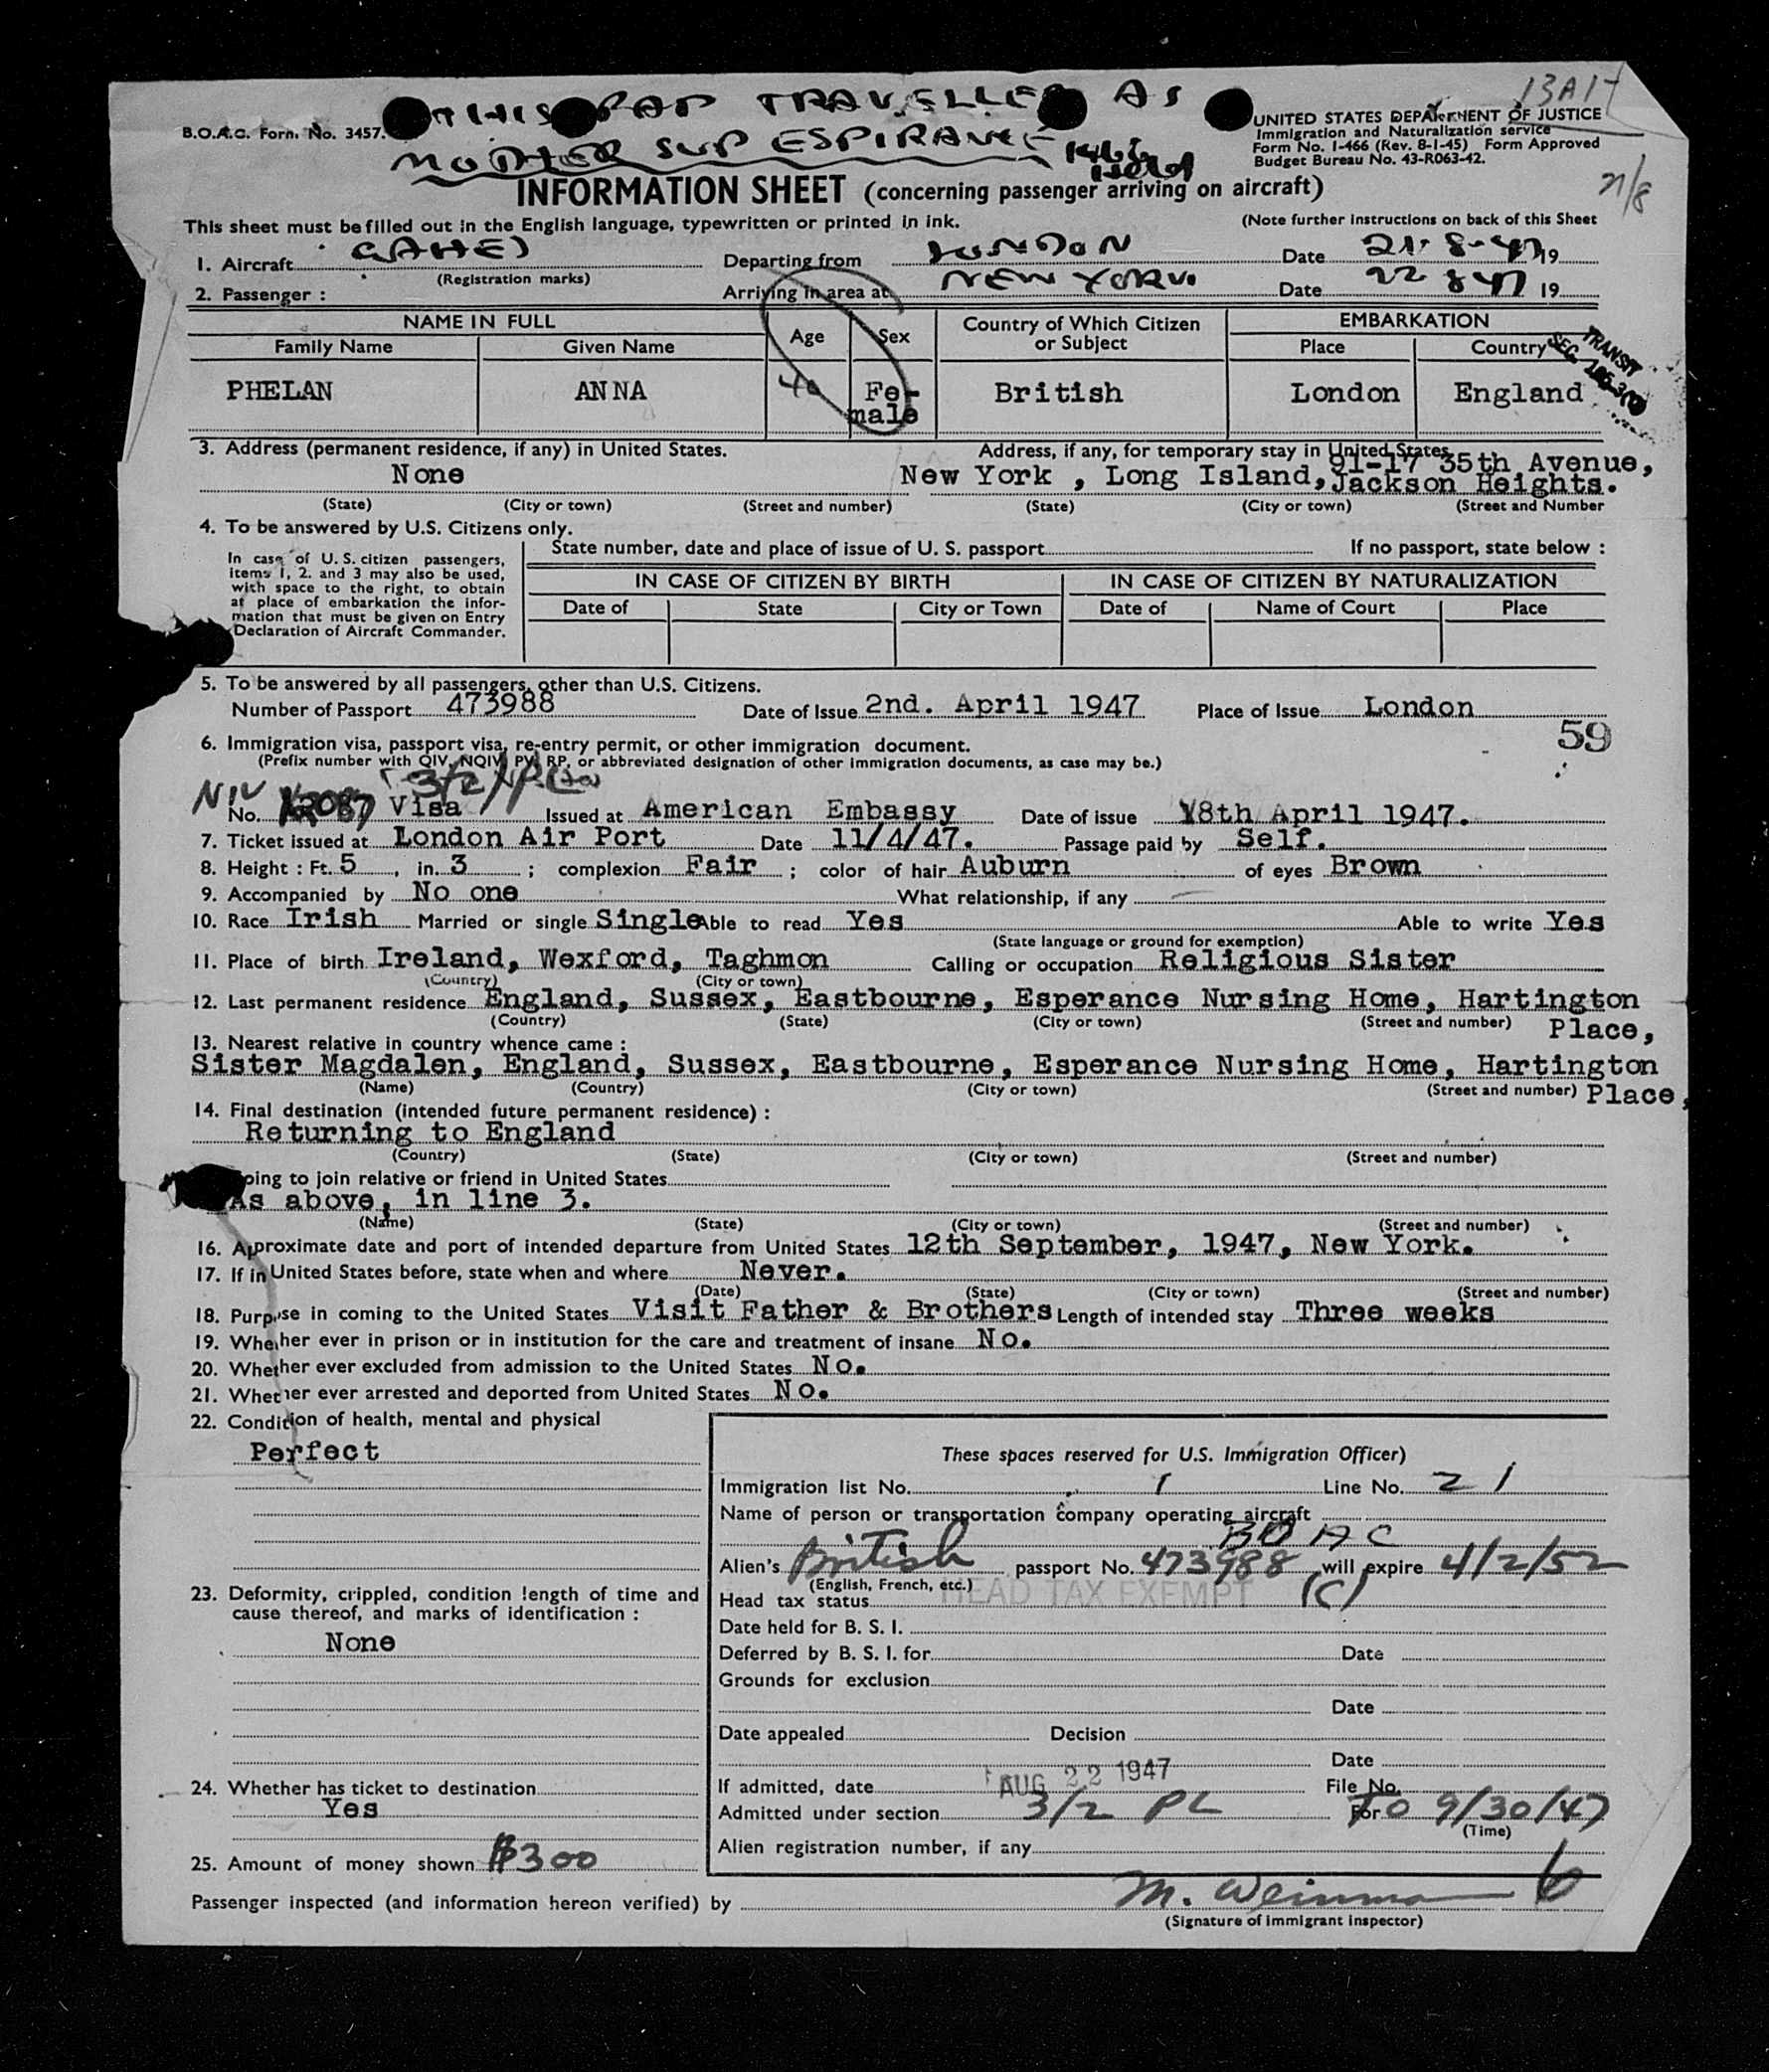 13A17
THIS PAP TRAVELLED AS
MOTHER SUP ESPIRANCE
1466
Held
B.O.A.C. Form. No. 3457.
UNITED STATES DEPARTMENT OF JUSTICE
Immigration and Naturalization service
Form No. I-466 (Rev. 8-1-45) Form Approved
Budget Bureau No. 43-R063-42.
21/8
INFORMATION SHEET (concerning passenger arriving on aircraft)
This sheet must be filled out in the English language, typewritten or printed in ink. (Note further instructions on back of this Sheet
1. Aircraft GAHEJ Departing from LONDON Date 21·8·47 19
(Registration marks)
2. Passenger : Arriving in area at NEW YORK. Date 22 8 47 19
NAME IN FULL Age Sex Country of Which Citizen or Subject EMBARKATION
Family Name Given Name Place Country
TRANSIT
SEC.
PHELAN ANNA 40 Fe-male British London England
3. Address (permanent residence, if any) in United States. Address, if any, for temporary stay in United States
None New York , Long Island, 91-17 35th Avenue, Jackson Heights.
(State) (City or town) (Street and number) (State) (City or town) (Street and Number
4. To be answered by U.S. Citizens only.
In case of U. S. citizen passengers, items 1, 2. and 3 may also be used, with space to the right, to obtain at place of embarkation the infor-mation that must be given on Entry Declaration of Aircraft Commander.
State number, date and place of issue of U. S. passport If no passport, state below :
IN CASE OF CITIZEN BY BIRTH IN CASE OF CITIZEN BY NATURALIZATION
Date of State City or Town Date of Name of Court Place
5. To be answered by all passengers, other than U.S. Citizens.
Number of Passport 473988 Date of Issue 2nd. April 1947 Place of Issue London
59
6. Immigration visa, passport visa, re-entry permit, or other immigration document.
(Prefix number with QIV, NQIV, PV, RP, or abbreviated designation of other immigration documents, as case may be.)
3/2
NIV
No. Visa Issued at American Embassy Date of issue 18th April 1947.
7. Ticket issued at London Air Port Date 11/4/47. Passage paid by Self.
8. Height : Ft. 5, in. 3 ; complexion Fair ; color of hair Auburn of eyes Brown
9. Accompanied by No one What relationship, if any —
10. Race Irish Married or single Single Able to read Yes Able to write Yes
(State language or ground for exemption)
11. Place of birth Ireland, Wexford, Taghmon Calling or occupation Religious Sister
(Country) (City or town)
12. Last permanent residence England, Sussex, Eastbourne, Esperance Nursing Home, Hartington Place,
(Country) (State) (City or town) (Street and number)
13. Nearest relative in country whence came :
Sister Magdalen, England, Sussex, Eastbourne, Esperance Nursing Home, Hartington Place,
(Name) (Country) (City or town) (Street and number)
14. Final destination (intended future permanent residence) :
Returning to England
(Country) (State) (City or town) (Street and number)
oing to join relative or friend in United States
As above, in line 3.
(Name) (State) (City or town) (Street and number)
16. Approximate date and port of intended departure from United States 12th September, 1947, New York.
17. If in United States before, state when and where Never.
(Date) (State) (City or town) (Street and number)
18. Purpose in coming to the United States Visit Father & Brothers Length of intended stay Three weeks
19. Whether ever in prison or in institution for the care and treatment of insane No.
20. Whether ever excluded from admission to the United States No.
21. Whether ever arrested and deported from United States No.
22. Condition of health, mental and physical
Perfect
23. Deformity, crippled, condition length of time and cause thereof, and marks of identification :
None
24. Whether has ticket to destination
Yes
25. Amount of money shown $300
These spaces reserved for U.S. Immigration Officer)
Immigration list No. 1 Line No. 21
Name of person or transportation company operating aircraft
BOAC
Alien's British passport No. 473988 will expire 4/2/52
(English, French, etc.)
Head tax status HEAD TAX EXEMPT (C)
Date held for B. S. I.
Deferred by B. S. I. for Date
Grounds for exclusion
Date
Date appealed Decision
Date
If admitted, date AUG 22 1947 File No.
Admitted under section 3/2 PL For TO 9/30/47
(Time)
Alien registration number, if any
6
Passenger inspected (and information hereon verified) by M. Weinman
(Signature of Immigrant Inspector)